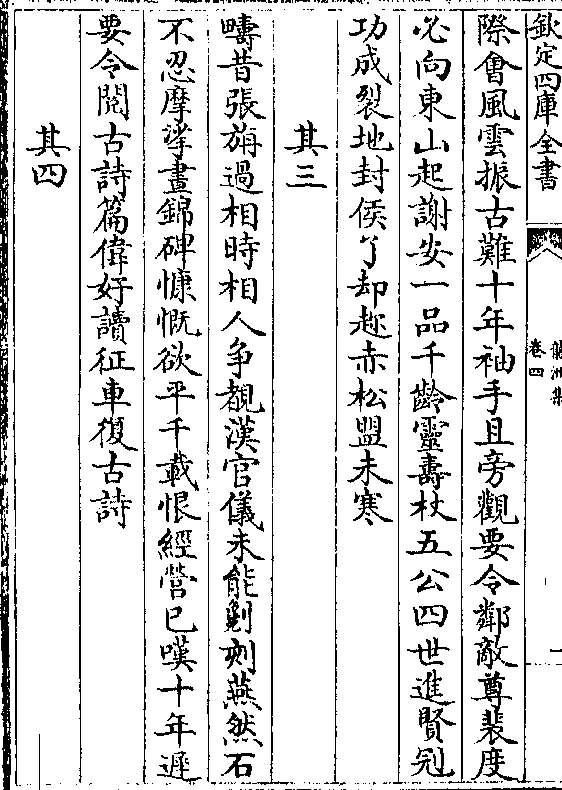 欽定四庫全書
龍洲集
卷四
際會風雲振古難十年袖手且旁觀要令鄰敵尊裴度
必向東山起謝安一品千齡靈壽杖五公四世進賢冠
功成裂地封侯了却趂赤松盟未寒
其三
疇昔張旃過相時相人争覩漢官儀未能剿刻燕然石
不忍摩挲晝錦碑慷慨欲平千載恨經營已嘆十年遲
要令閱古詩篇偉好讀征車復古詩
其四